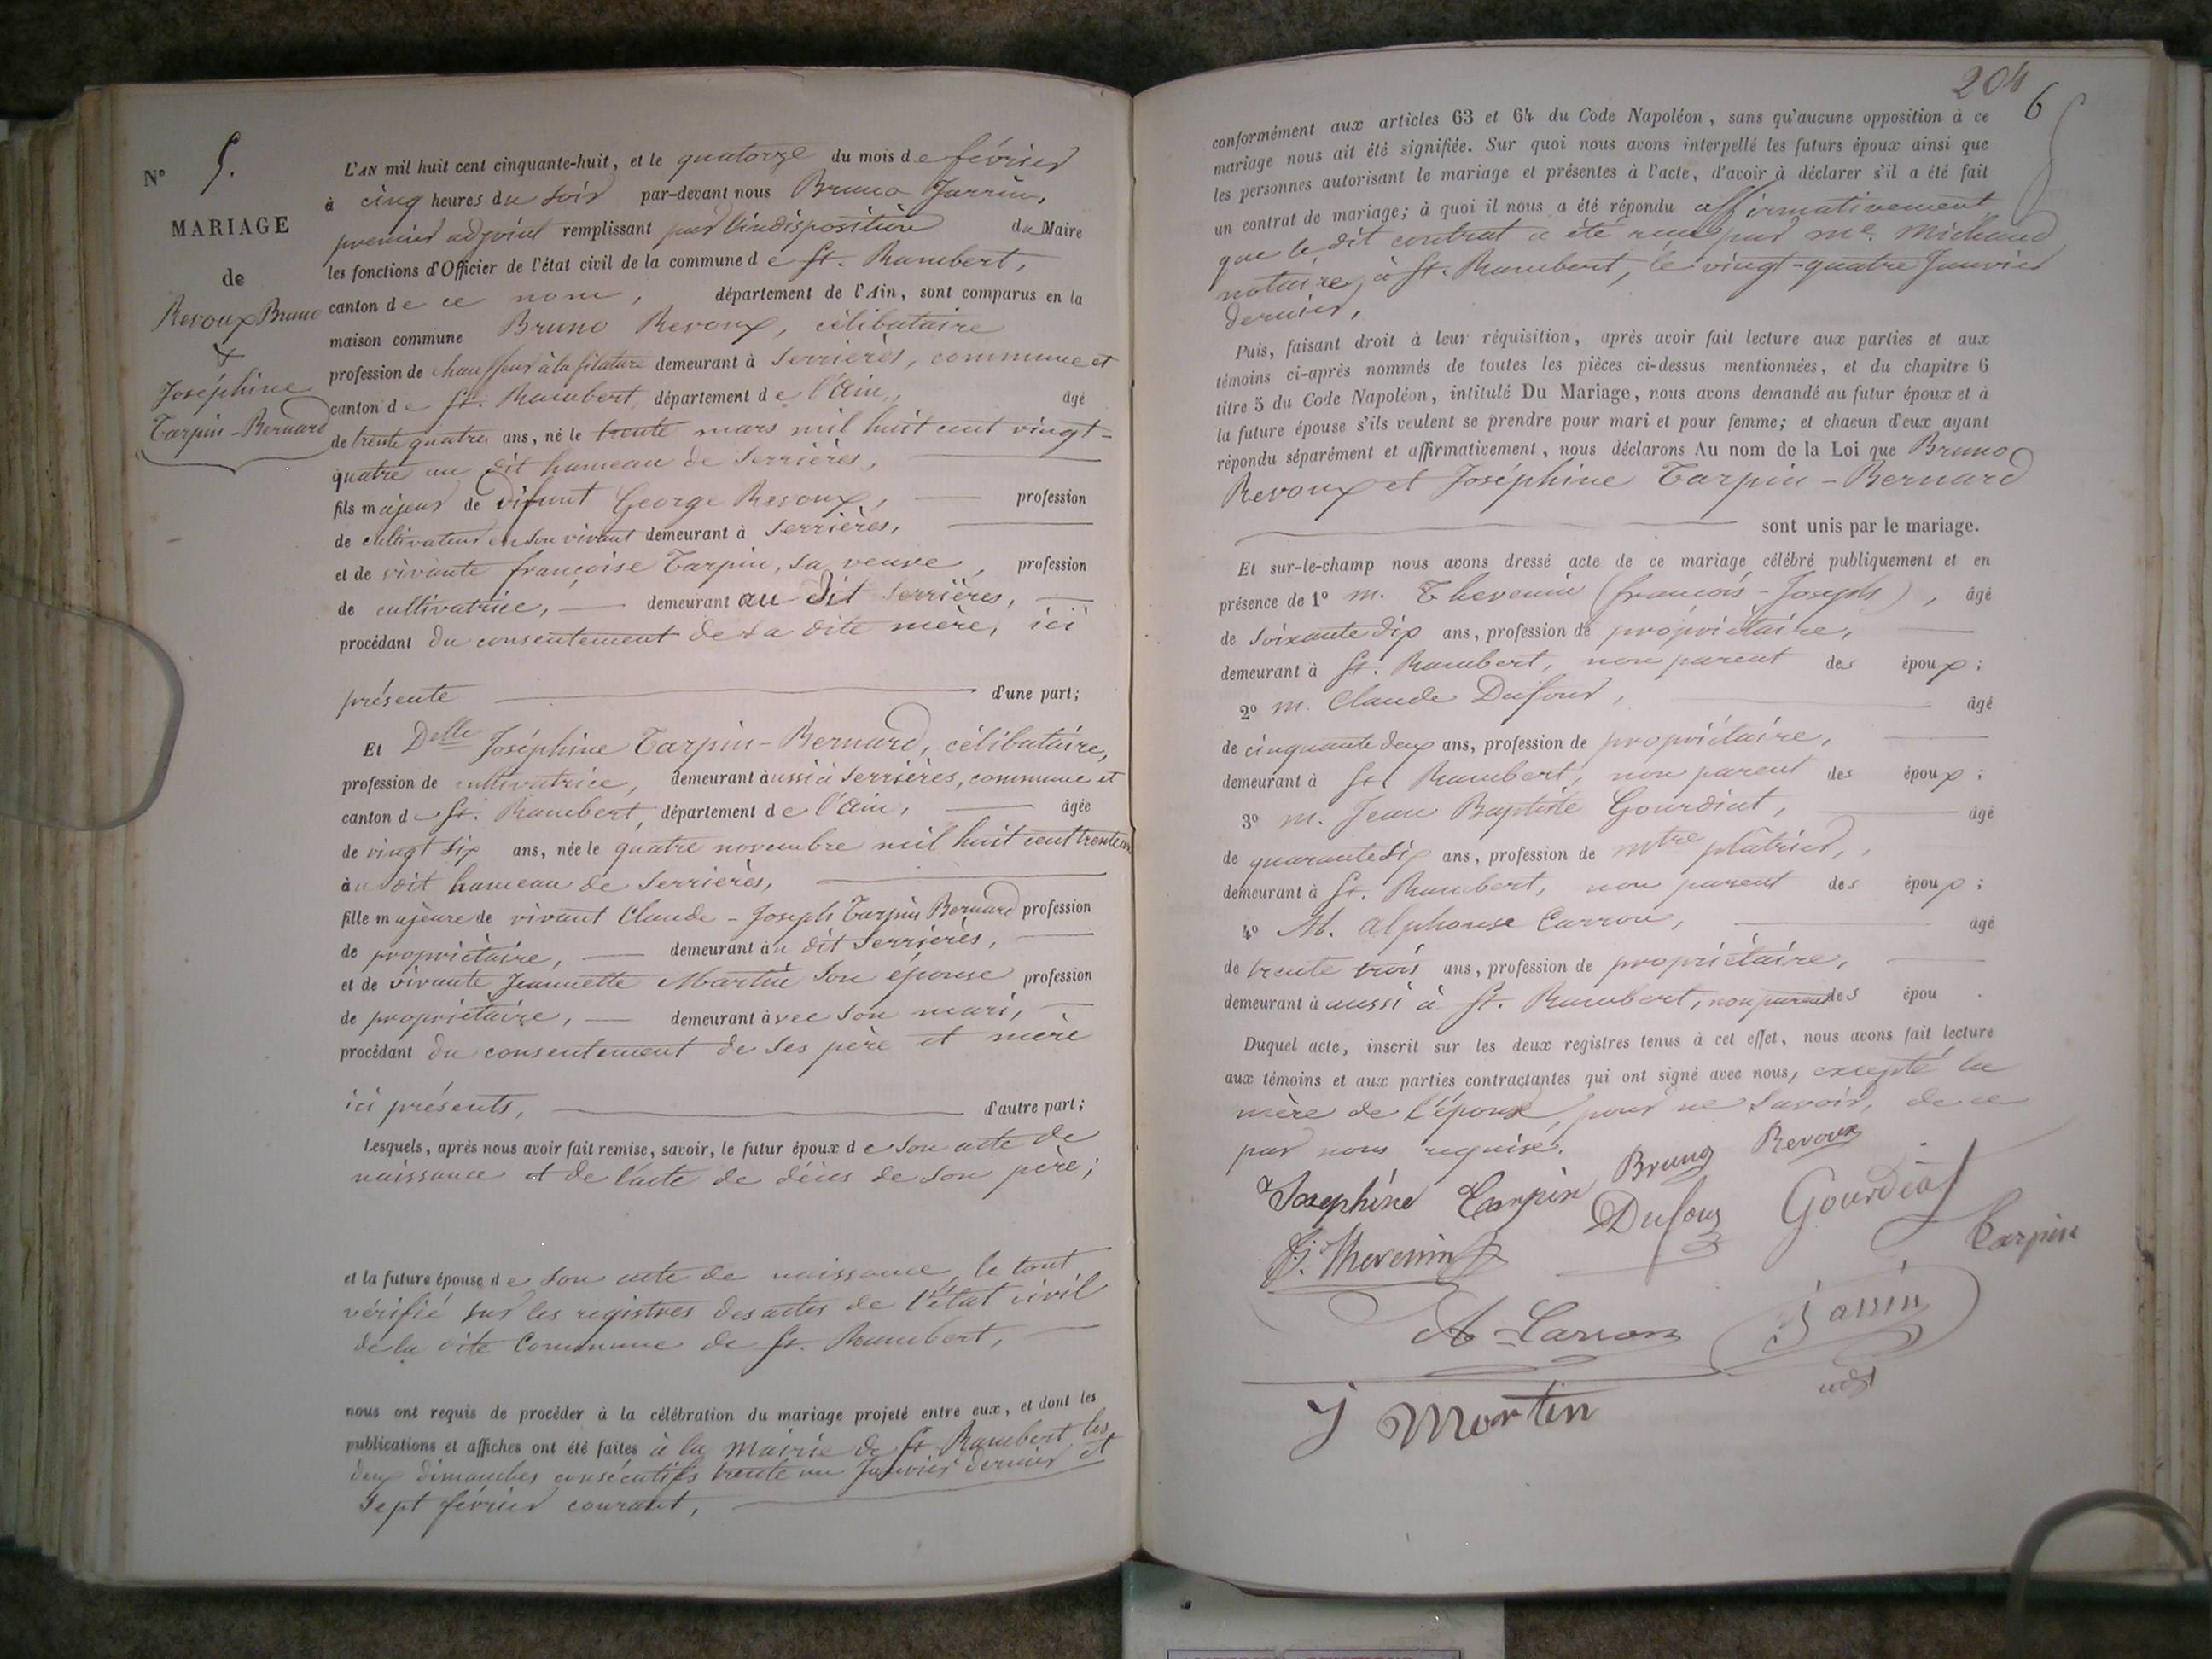 N° 5.
MARIAGE
de
Revoux Bruno
&
Joséphine
Tarpin-Bernard
L'AN mil huit cent cinquante-huit, et le quatorze du mois de février
à cinq heures du soir par-devant nous Bruno Jarrin,
premier adjoint remplissant par l'indisposition du Maire
les fonctions d'Officier de l'état civil de la commune de St. Rambert,
canton de ce nom, département de l'Ain, sont comparus en la
maison commune Bruno Revoux, célibataire
profession de chauffeur à la filature demeurant à Serrières, commune et
canton de St. Rambert, département de l'Ain, âgé
de trente quatre ans, né le trente mars mil huit cent vingt-
quatre au dit hameau de Serrières,
fils majeur de difunt George Revoux, profession
de cultivateur en son vivant demeurant à Serrières,
et de vivante françoise Tarpin, sa veuve, profession
de cultivatrice, demeurant au dit Serrières,
procédant du consentement de sa dite mère, ici
présente d'une part;
Et Delle Joséphine Tarpin-Bernard, célibataire,
profession de cultivatrice, demeurant aussi à Serrières, commune et
canton de St. Rambert, département de l'Ain, âgée
de vingt six ans, née le quatre novembre mil huit cent trente un
au dit hameau de Serrières,
fille majeure de vivant Claude-Joseph Tarpin Bernard profession
de propriétaire, demeurant au dit Serrières,
et de vivante Jeannette Martin son épouse profession
de propriétaire, demeurant avec son mari,
procédant du consentement de ses père et mère
ici présents, d'autre part;
Lesquels, après nous avoir fait remise, savoir, le futur époux de son acte de
naissance et de l'acte de décès de son père;
et la future épouse de son acte de naissance, le tout
vérifié sur les registres des actes de l'état civil
de la dite Commune de St. Rambert,
nous ont requis de procéder à la célébration du mariage projeté entre eux, et dont les
publications et affiches ont été faites à la Mairie de St Rambert les
deux dimanches consécutifs trente un Janvier dernier et
Sept février courant,
204
6
conformément aux articles 63 et 64 du Code Napoléon, sans qu'aucune opposition à ce
mariage nous ait été signifiée. Sur quoi nous avons interpellé les futurs époux ainsi que
les personnes autorisant le mariage et présentes à l'acte, d'avoir à déclarer s'il a été fait
un contrat de mariage; à quoi il nous a été répondu affirmativement
que le dit contrat a été reçu par Me. Michaud
notaire, à St. Rambert, le vingt-quatre Janvier
dernier,
Puis, faisant droit à leur réquisition, après avoir fait lecture aux parties et aux
témoins ci-après nommés de toutes les pièces ci-dessus mentionnées, et du chapitre 6
titre 5 du Code Napoléon, intitulé Du Mariage, nous avons demandé au futur époux et à
la future épouse s'ils veulent se prendre pour mari et pour femme; et chacun d'eux ayant
répondu séparément et affirmativement, nous déclarons Au nom de la Loi que Bruno
Revoux et Joséphine Tarpin-Bernard
sont unis par le mariage.
Et sur-le-champ nous avons dressé acte de ce mariage célébré publiquement et en
présence de 1° M. Thevenin (françois-Joseph), âgé
de Soixante dix ans, profession de propriétaire,
demeurant à St. Rambert, non parent des époux;
2° M. Claude Dufour, âgé
de cinquante deux ans, profession de propriétaire,
demeurant à St. Rambert, non parent des époux;
3° M. Jean Baptiste Gourdiat, âgé
de quarante six ans, profession de mtre plâtrier,
demeurant à St. Rambert, non parent des époux;
4° M. Alphonse Carron, âgé
de trente trois ans, profession de propriétaire,
demeurant à aussi à St. Rambert, non parent des épou .
Duquel acte, inscrit sur les deux registres tenus à cet effet, nous avons fait lecture
aux témoins et aux parties contractantes qui ont signé avec nous, excepté la
mère de l'époux, pour ne Savoir, de ce
par nous requise.
Bruno Revoux
Josephine Tarpin
Dufour
Gourdiat
Tarpin
Thevenin
A Carron
Jarrin
adjt
J Martin